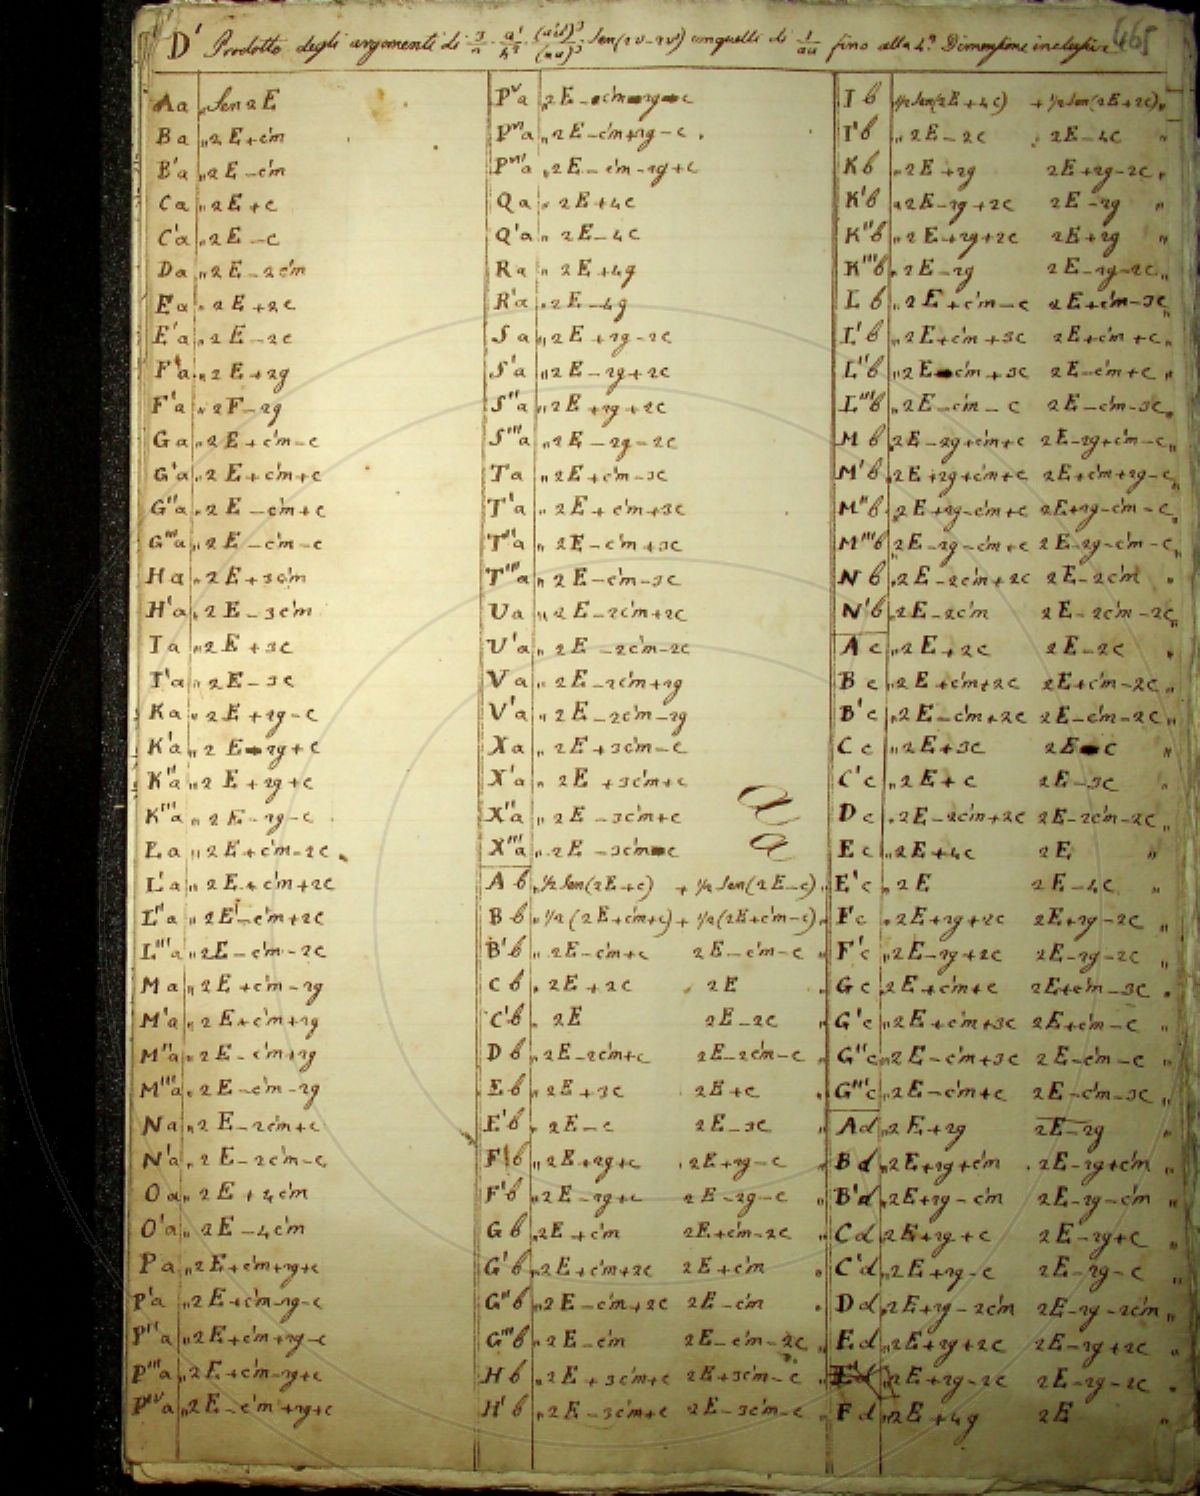 D' Prodotto degli argomenti di 3/n · a'/h² · (a'u')³/(au)³ · Sen(2v-2v') con quelli di 1/au fino alla 4ª Dimensione inclusive 465
Aa „ Sen 2E
Ba „ 2E+c'm
B'a „ 2E-c'm
Ca „ 2E+c
C'a „ 2E-c
Da „ 2E-2c'm
Ea „ 2E+2c
E'a „ 2E-2c
Fa „ 2E+2g
F'a „ 2E-2g
Ga „ 2E+c'm-c
G'a „ 2E+c'm+c
G''a „ 2E-c'm+c
G'''a „ 2E-c'm-c
Ha „ 2E+3c'm
H'a „ 2E-3c'm
Ia „ 2E+3c
I'a „ 2E-3c
Ka „ 2E+2g-c
K'a „ 2E-2g+c
K''a „ 2E+2g+c
K'''a „ 2E-2g-c
La „ 2E+c'm-2c
L'a „ 2E+c'm+2c
L''a „ 2E-c'm+2c
L'''a „ 2E-c'm-2c
Ma „ 2E+c'm-2g
M'a „ 2E+c'm+2g
M''a „ 2E-c'm+2g
M'''a „ 2E-c'm-2g
Na „ 2E-2c'm+c
N'a „ 2E-2c'm-c
Oa „ 2E+4c'm
O'a „ 2E-4c'm
Pa „ 2E+c'm+2g+c
P'a „ 2E+c'm-2g-c
P''a „ 2E+c'm+2g-c
P'''a „ 2E+c'm-2g+c
P'ᵛa „ 2E-c'm+2g+c
Pᵛa „ 2E-c'm-2g-c
Pᵛ'a „ 2E-c'm+2g-c
Pᵛ''a „ 2E-c'm-2g+c
Qa „ 2E+4c
Q'a „ 2E-4c
Ra „ 2E+4g
R'a „ 2E-4g
Sa „ 2E+2g-2c
S'a „ 2E-2g+2c
S''a „ 2E+2g+2c
S'''a „ 2E-2g-2c
Ta „ 2E+c'm-3c
T'a „ 2E+c'm+3c
T''a „ 2E-c'm+3c
T'''a „ 2E-c'm-3c
Ua „ 2E-2c'm+2c
U'a „ 2E-2c'm-2c
Va „ 2E-2c'm+2g
V'a „ 2E-2c'm-2g
Xa „ 2E+3c'm-c
X'a „ 2E+3c'm+c
X''a „ 2E-3c'm+c
X'''a „ 2E-3c'm-c
a
a
Ab „ ½ Sen(2E+c) + ½ Sen(2E-c) „
Bb „ ½(2E+c'm+c) + ½(2E+c'm-c) „
B'b „ 2E-c'm+c 2E-c'm-c „
Cb „ 2E+2c 2E „
C'b „ 2E 2E-2c „
Db „ 2E-2c'm+c 2E-2c'm-c „
Eb „ 2E+3c 2E+c „
E'b „ 2E-c 2E-3c „
Fb „ 2E+2g+c 2E+2g-c „
F'b „ 2E-2g+c 2E-2g-c „
Gb „ 2E+c'm 2E+c'm-2c „
G'b „ 2E+c'm+2c 2E+c'm „
G''b „ 2E-c'm+2c 2E-c'm „
G'''b „ 2E-c'm 2E-c'm-2c „
Hb „ 2E+3c'm+c 2E+3c'm-c „
H'b „ 2E-3c'm+c 2E-3c'm-c „
Ib ½ Sen(2E+4c) + ½ Sen(2E+2c) „
I'b „ 2E-2c 2E-4c „
Kb „ 2E+2g 2E+2g-2c „
K'b „ 2E-2g+2c 2E-2g „
K''b „ 2E+2g+2c 2E+2g „
K'''b „ 2E-2g 2E-2g-2c „
Lb „ 2E+c'm-c 2E+c'm-3c „
L'b „ 2E+c'm+3c 2E+c'm+c „
L''b „ 2E-c'm+3c 2E-c'm+c „
L'''b „ 2E-c'm-c 2E-c'm-3c „
Mb 2E-2g+c'm+c 2E-2g+c'm-c „
M'b 2E+2g+c'm+c 2E+c'm+2g-c „
M''b 2E+2g-c'm+c 2E+2g-c'm-c „
M'''b 2E-2g-c'm+c 2E-2g-c'm-c „
Nb „ 2E-2c'm+2c 2E-2c'm „
N'b „ 2E-2c'm 2E-2c'm-2c „
Ac „ 2E+2c 2E-2c „
Bc „ 2E+c'm+2c 2E+c'm-2c „
B'c „ 2E-c'm+2c 2E-c'm-2c „
Cc „ 2E+3c 2E-c „
C'c „ 2E+c 2E-3c „
Dc „ 2E-2c'm+2c 2E-2c'm-2c „
Ec „ 2E+4c 2E „
E'c „ 2E 2E-4c „
Fc „ 2E+2g+2c 2E+2g-2c „
F'c „ 2E-2g+2c 2E-2g-2c „
Gc „ 2E+c'm+c 2E+c'm-3c „
G'c „ 2E+c'm+3c 2E+c'm-c „
G''c „ 2E-c'm+3c 2E-c'm-c „
G'''c „ 2E-c'm+c 2E-c'm-3c „
Ad „ 2E+2g 2E-2g „
Bd „ 2E+2g+c'm 2E-2g+c'm „
B'd „ 2E+2g-c'm 2E-2g-c'm „
Cd 2E+2g+c 2E-2g+c „
C'd „ 2E+2g-c 2E-2g-c „
Dd „ 2E+2g-2c'm 2E-2g-2c'm „
Ed „ 2E+2g+2c 2E-2g+2c „
E'd „ 2E+2g-2c 2E-2g-2c „
Fd „ 2E+4g 2E „